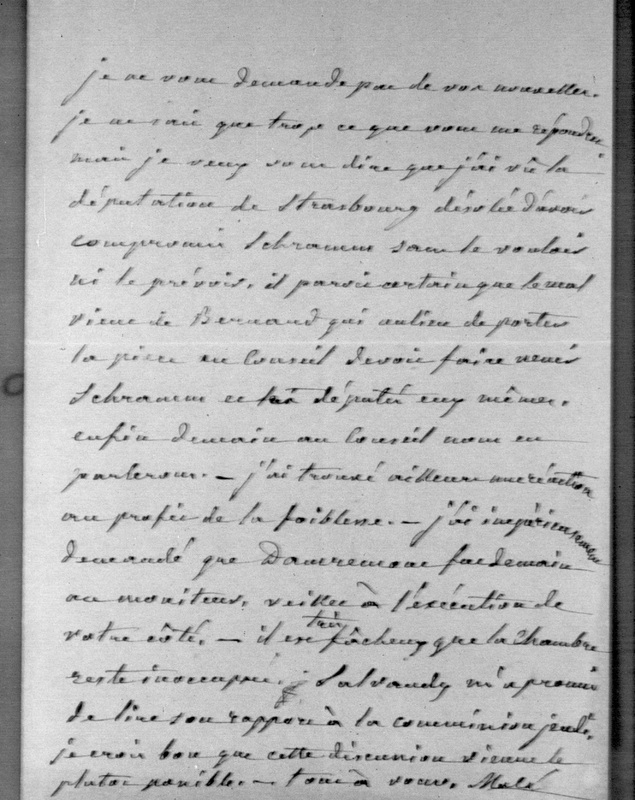 je ne vous demande pas de vos nouvelles.
je ne sais que trop ce que vous me répondrez
mais je veux vous dire que j'ai vû la
députation de Strasbourg désolée d'avoir
compromis Schramm sans le vouloir
ni le prévoir. il paroit certain que le mal
vient de Bernard qui au lieu de porter
la pièce au Conseil devoit faire venir
Schramm et les députés eux mêmes.
enfin demain au Conseil nous en
parlerons. — j'ai trouvé ailleurs une réaction
au profit de la foiblesse. — j'ai impérieusement
demandé que Damremont fut demain
au moniteur. veillez à l'exécution de
votre côté. — il est très fâcheux que la Chambre
reste inoccupée. Salvandy m'a promis
de lire son rapport à la commission jeudi.
je crois bon que cette discussion vienne le
plutot possible. — tout à vous. Molé